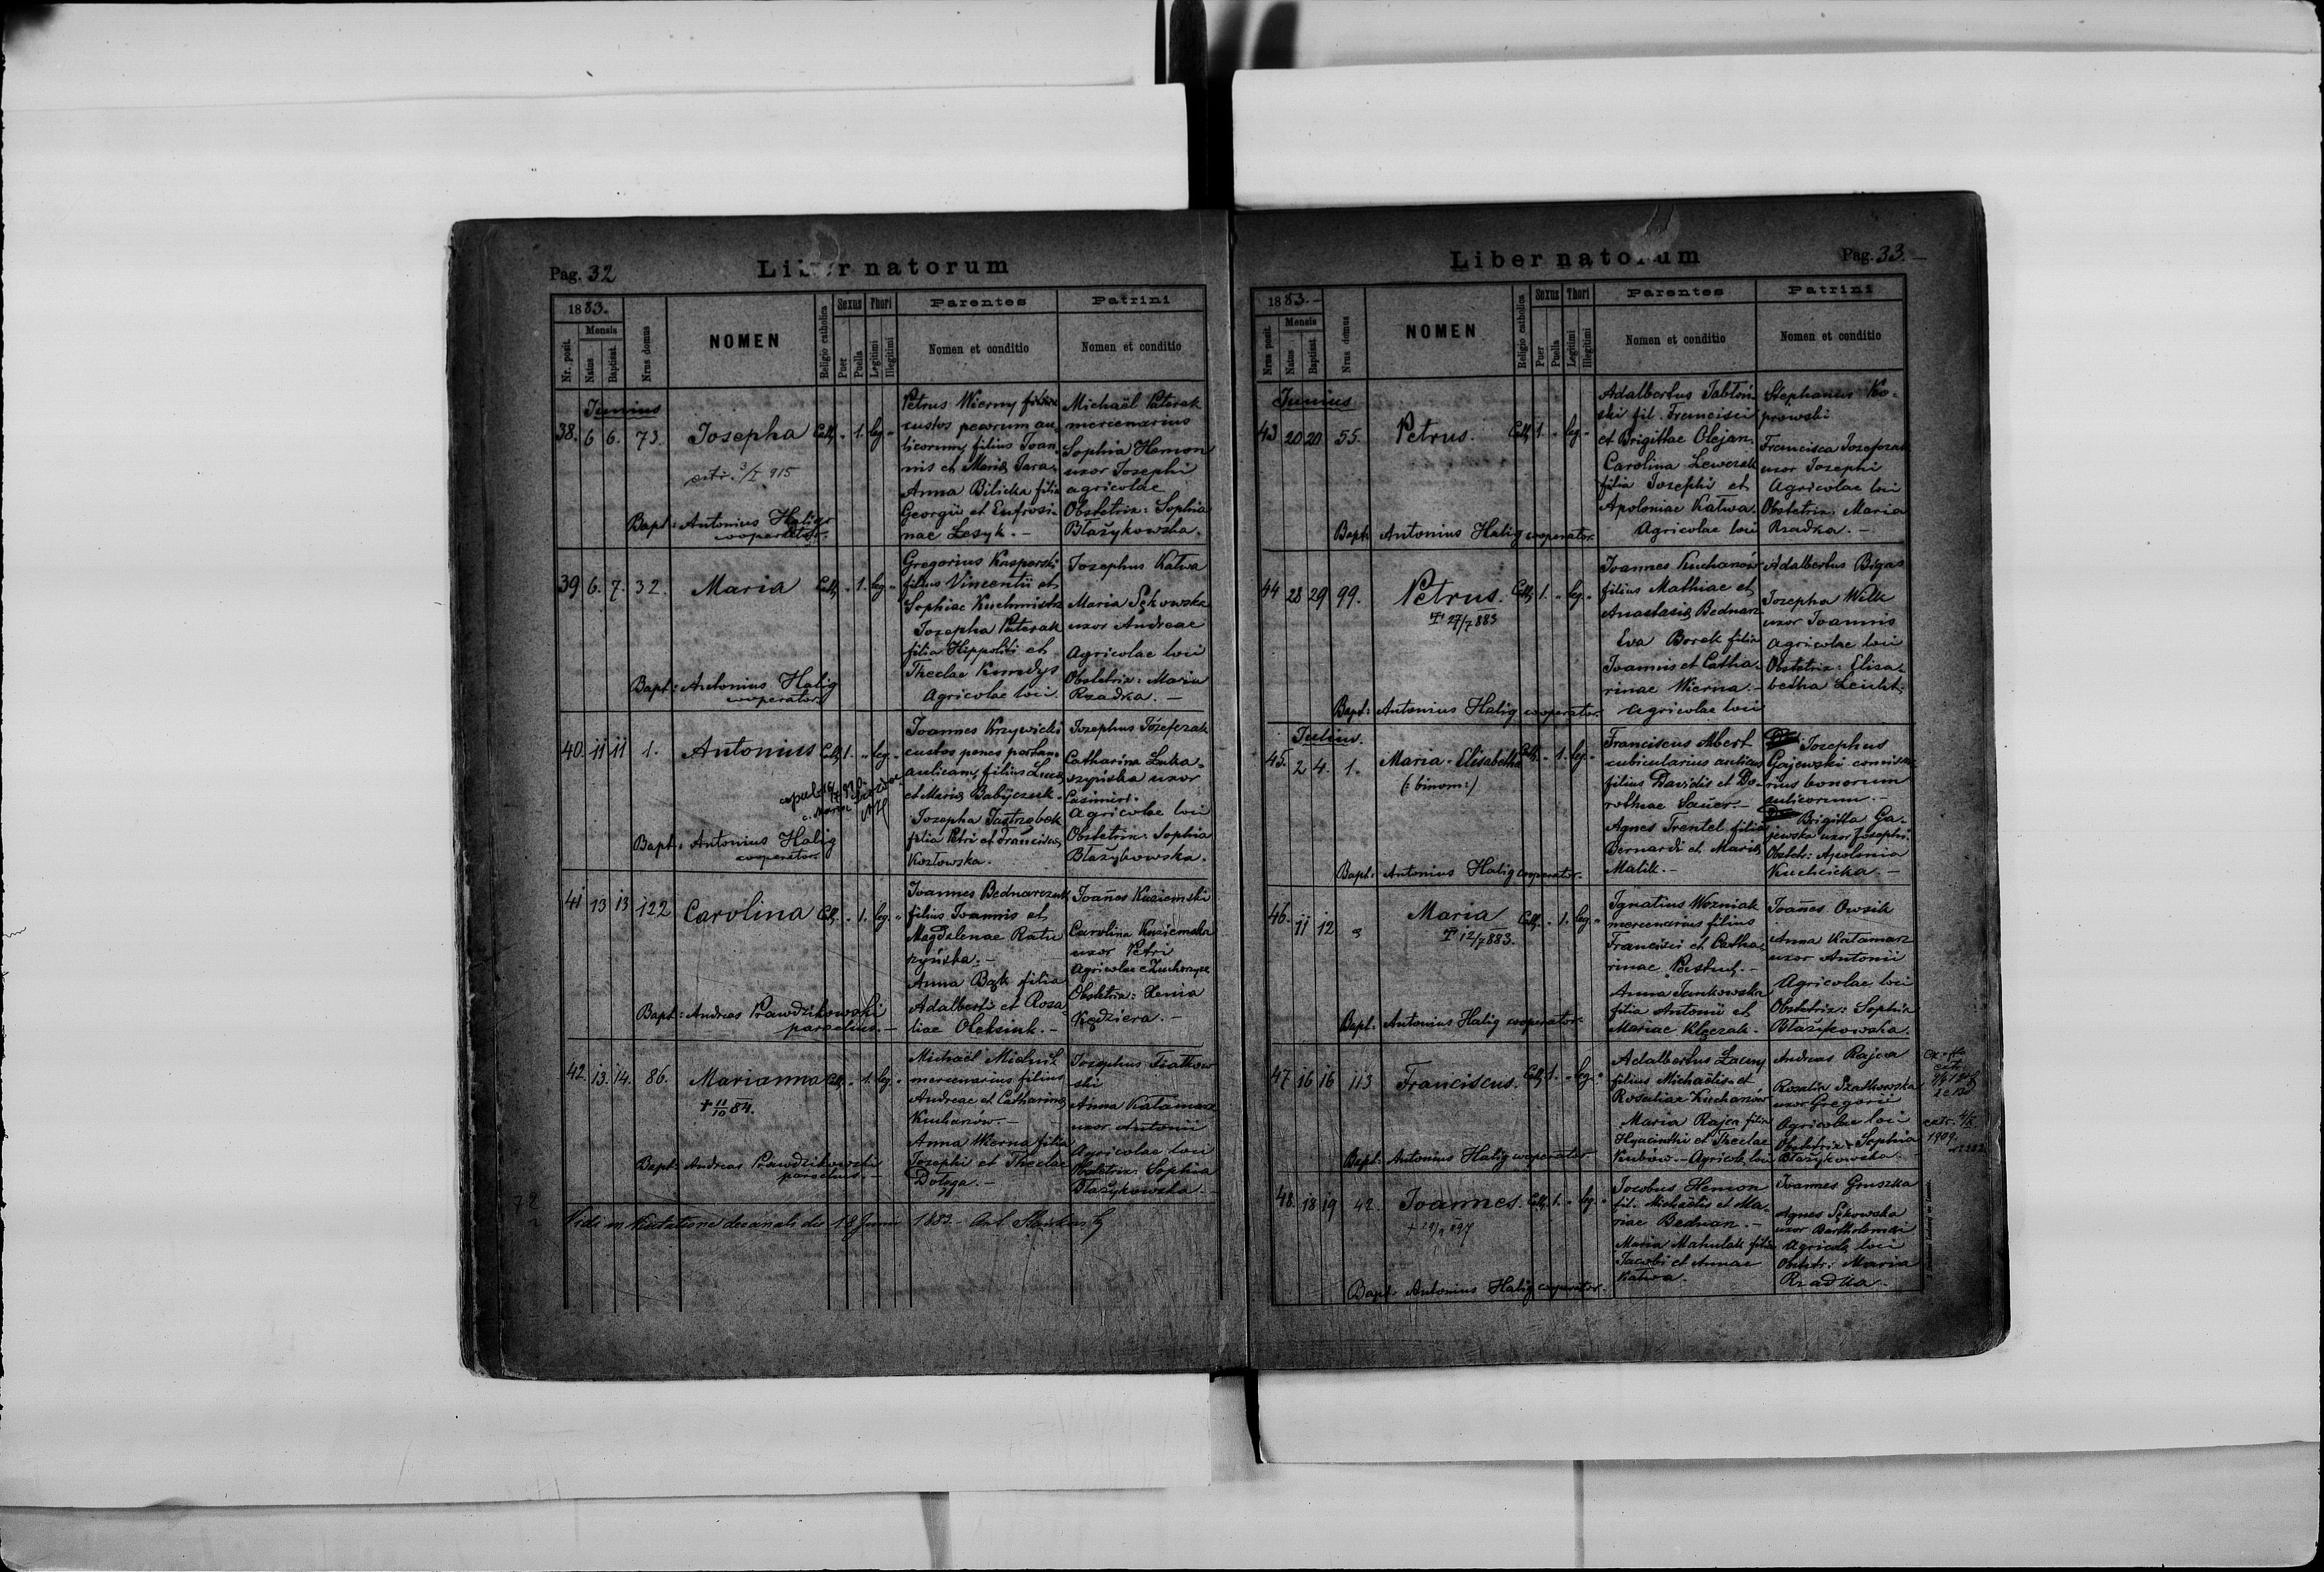 Pag. 32
Liber natorum
1883.
Nr. posit.
Mensis
Natus
Baptisat.
Nrus domus
NOMEN
Religio catholica
Sexus
Puer
Puella
Thori
Legitimi
Illegitimi
Parentes
Nomen et conditio
Patrini
Nomen et conditio
Junius
38. 6 6. 73. Josepha Cath. " 1. leg. "
extr. 3/I 915
Bapt: Antonius Halig
cooperator.
Petrus Wierny
custos pecorum au-
licorum, filius Joan-
nis et Mariae Tara-
Anna Bilicka filia
Georgii et Eufrosi-
nae Lesyk. -
Michaël Paterak
mercenarius
Sophia Hamon
uxor Josephi
agricolae
Obstetrix: Sophia
Błażykowska.
39 6. 7. 32. Maria Cath. " 1. leg. "
Bapt: Antonius Halig
cooperator.
Gregorius Kasperski
filius Vincentii et
Sophiae Kuchmistz
Josepha Paterak
filia Hippoliti et
Theclae
Agricolae loci
Josephus Katwa
Maria Sękowska
uxor Andreae
Agricolae loci
Obstetrix: Maria
Rzadka. -
40. 11 11 1. Antonius Cath. 1. " leg. "
copul.
c. Maria
Bapt: Antonius Halig
cooperator.
Joannes Krzywicki
custos penes portam
aulicam, filius Lucae
et Mariae Babijczuk.
Josepha Jastrzębek
filia Petri et Franciscae
Kozłowska.
Josephus Józefczak
Catharina Luka-
szyńska uxor
Casimiri.
Agricolae loci
Obstetrix: Sophia
Błażykowska.
41 13 13 122 Carolina Cath. " 1. leg. "
Bapt: Andreas Prawdzikowski
parochus. -
Joannes Bednarczuk
filius Joannis et
Magdalenae Ratu
szyńska. -
Anna Bąk filia
Adalberti et Rosa-
liae Oleksiuk. -
Joañes Kuziemski
Carolina Kuziemska
uxor Petri
Agricolae
Obstetrix: Xenia
Kędziera. -
42. 13. 14. 86. Marianna Cath. " 1. leg. "
+ 11/10 84.
Bapt: Andreas Prawdzikowski
parochus. -
Michaël
mercenarius filius
Andreae et Catharinae
Kuchanów. -
Anna Wierna filia
Josephi et Theclae
Dołęga. -
Josephus Fiałkow
ski
Anna Katamarz
uxor Antonii
Agricolae loci
Obstetrix: Sophia
Błażykowska. -
Vidi in visitatione decanali die 18 Junii 1883.
Liber natorum
Pag. 33. -
1883. -
Nrus posit.
Mensis
Natus
Baptisat.
Nrus domus
NOMEN
Religio catholica
Sexus
Puer
Puella
Thori
Legitimi
Illegitimi
Parentes
Nomen et conditio
Patrini
Nomen et conditio
Junius
43 20 20 55. Petrus. Cath. 1. " leg. "
Bapt: Antonius Halig cooperator.
Adalbertus Jabłoń-
ski fil. Francisci
et Brigittae Olejar.
Carolina Lewczak
filia Josephi et
Apoloniae Katwa.
Agricolae loci
Stephanus Ko-
prowski
Francisca Jozefczak
uxor Josephi
Agricolae loci
Obstetrix: Maria
Rzadka. -
44 28 29 99. Petrus. Cath. 1. " leg. "
+ 27/7 883
Bapt: Antonius Halig cooperator.
Joannes Kuchanów
filius Mathiae et
Anastasiae Bednarz
Eva Borek filia
Joannis et Catha-
rinae Wierna. -
Agricolae loci
Adalbertus Bigas
Josepha Wilk
uxor Joannis
Agricolae loci
Obstetrix: Elisa-
betha Leicht.
Julius.
45. 2 4. 1. Maria-Elisabetha Cath. " 1. leg. "
(: binom :)
Bapt: Antonius Halig cooperator.
Franciscus Albert
cubicularius aulicus
filius Davidis et Do-
rotheae Sauer. -
Agnes Trentel filia
Bernardi et Mariae
Malik. -
Josephus
Gajewski commissa-
rius bonorum
aulicorum. -
Brigitta Ga-
jewska uxor Josephi.
Obstetr: Apolonia
Kuchcicka. -
46. 11 12 Maria Cath. " 1. leg. "
+ 12/7 883.
Bapt: Antonius Halig cooperator.
Ignatius Wozniak
mercenarius filius
Francisci et Catha-
rinae Pastuch. -
Anna Jankowska
filia Antonii et
Mariae Klęczak. -
Joañes Owsik
Anna Katamarz
uxor Antonii
Agricolae loci
Obstetrix: Sophia
Błażykowska.
47 16 16 113 Franciscus. Cath. 1. " leg. "
Bapt: Antonius Halig cooperator
Adalbertus Łacny
filius Michaëlis et
Rosaliae Kuchanów
Maria Rajca filia
Hyacinthi et Theclae
Kubów. - Agricolae loci
Andreas Rajca
Rosalia Szatkowska
uxor Gregorii
Agricolae loci
Obstetrix Sophia
Błażykowska.
extr. 4/X
1909.
48. 18 19 42. Joannes. Cath. 1. " leg. "
Bapt: Antonius Halig cooperator.
Jacobus Hemon
fil. Michaëlis et Ma-
riae Bednarz. -
Maria Mahulak filia
Jacobi et Annae
Katwa. -
Joannes Gruszka
Agnes Sękowska
uxor Bartholomaei
Agricolae loci
Obstetr: Maria
Rzadka. -